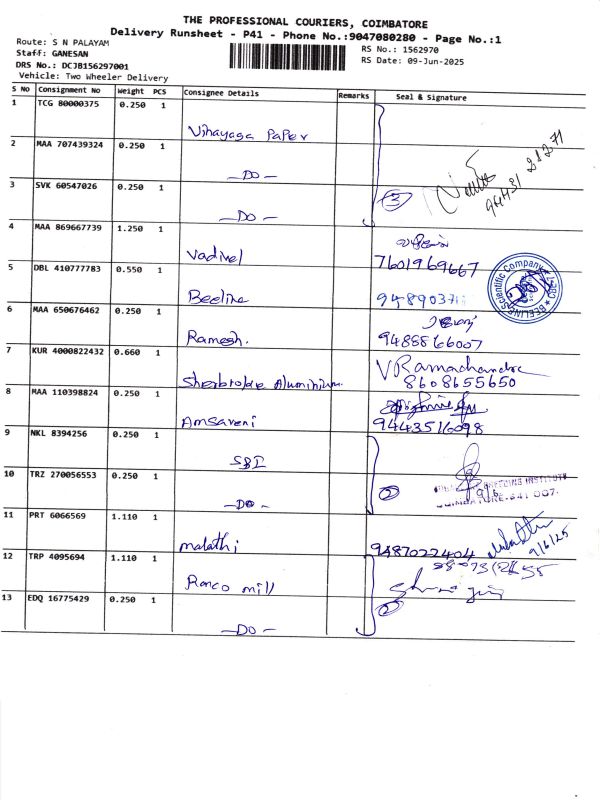 THE PROFESSIONAL COURIERS, COIMBATORE
Delivery Runsheet - P41 - Phone No.:9047080280 - Page No.:1
Route: S N PALAYAM
Staff: GANESAN
DRS No.: DCJB156297001
Vehicle: Two Wheeler Delivery
RS No.: 1562970
RS Date: 09-Jun-2025
S No Consignment No Weight PCS Consignee Details Remarks Seal & Signature
1 TCG 80000375 0.250 1
Vinayaga Paper
2 MAA 707439324 0.250 1
—DO—
3 SVK 60547026 0.250 1
—DO— 3
4 MAA 869667739 1.250 1
Vadivel 7601969667
5 DBL 410777783 0.550 1
Beeline
BEELINE Scientific Company
6 MAA 650676462 0.250 1
Ramesh. 9488866007
7 KUR 4000822432 0.660 1
VRamachandra
Aluminium 8608655650
8 MAA 110398824 0.250 1
Amsaveni 9443516098
9 NKL 8394256 0.250 1
SBI
10 TRZ 270056553 0.250 1
—DO— 2 9/6
BREEDING INSTITUTE
COIMBATORE-641 007.
11 PRT 6066569 1.110 1
malathi 9487022404
9/6/25
12 TRP 4095694 1.110 1
Ranco mill
13 EDQ 16775429 0.250 1
—DO— 2